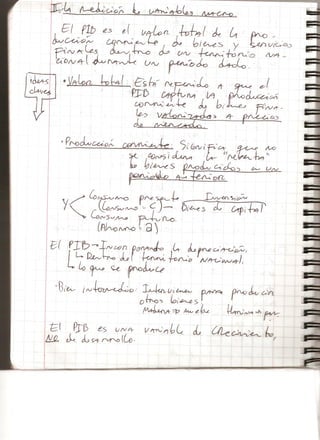 I. La medición de variables macro.
El PIB es el valor total de la pro-
ducción corriente de bienes y servicios
finales dentro de un territorio na-
cional durante un período dado.
ideas
claves
• Valor total: Está referido a que el
PIB captura la producción
corriente de bienes fina-
les valorizados a precios
de mercado.
• Producción corriente: Significa que no
se considera la "reventa"
de bienes producidos en un
período anterior
Y
Consumo presente
(Consumo - C)
Inversión
Bienes de capital
Consumo futuro
(Ahorro)
El PIB → Incorporando la depreciación.
Dentro del territorio nacional.
lo que se produce
• Bien intermedio: Intervienen para producir
otros bienes
El PIB es una variable de crecimiento,
NO de desarrollo.